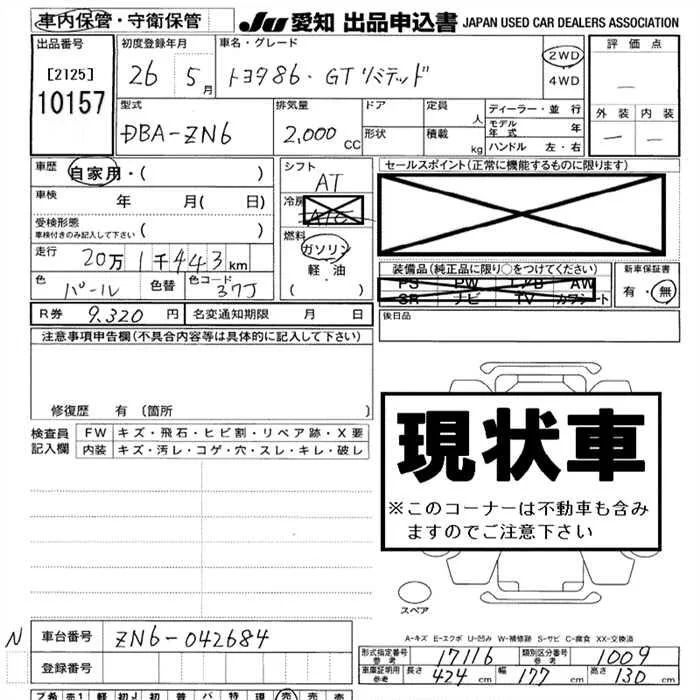 車内保管・守衛保管
JU 愛知 出品申込書 JAPAN USED CAR DEALERS ASSOCIATION
出品番号
[2125]
10157
初度登録年月
26 5月
車名・グレード
トヨタ86・GTリミテッド
2WD
4WD
評価点
—
外装 内装
— —
型式
DBA-ZN6
排気量
2,000 CC
ドア
形状
定員 人
積載 kg
ディーラー・並行
モデル年式 年
ハンドル 左・右
車歴
自家用・( )
車検 年 月( 日)
受検形態
車検付きのみ記入して下さい ( )
走行 20万1千443km
色 パール 色替 色コード 37J
シフト
AT
冷房
AAC
燃料
ガソリン
軽油
( )
セールスポイント(正常に機能するものに限ります)
装備品(純正品に限り○をつけてください)
PS PW AW
SR ナビ TV カワシート
新車保証書
有・無
後日品
R券 9,320 円 名変通知期限 月 日
注意事項申告欄(不具合内容等は具体的に記入して下さい)
修復歴 有(箇所 )
検査員記入欄
FW キズ・飛石・ヒビ割・リペア跡・X要
内装 キズ・汚レ・コゲ・穴・スレ・キレ・破レ
現状車
※このコーナーは不動車も含み
ますのでご注意下さい
スペア
A-キズ E-エクボ U-凹み W-補修跡 S-サビ C-腐食 XX-交換済
N 車台番号 ZN6-042684
登録番号
形式指定番号 参考 17116 類別区分番号 参考 1009
車庫証明用 参考 長さ 424cm 幅 177cm 高さ 130cm